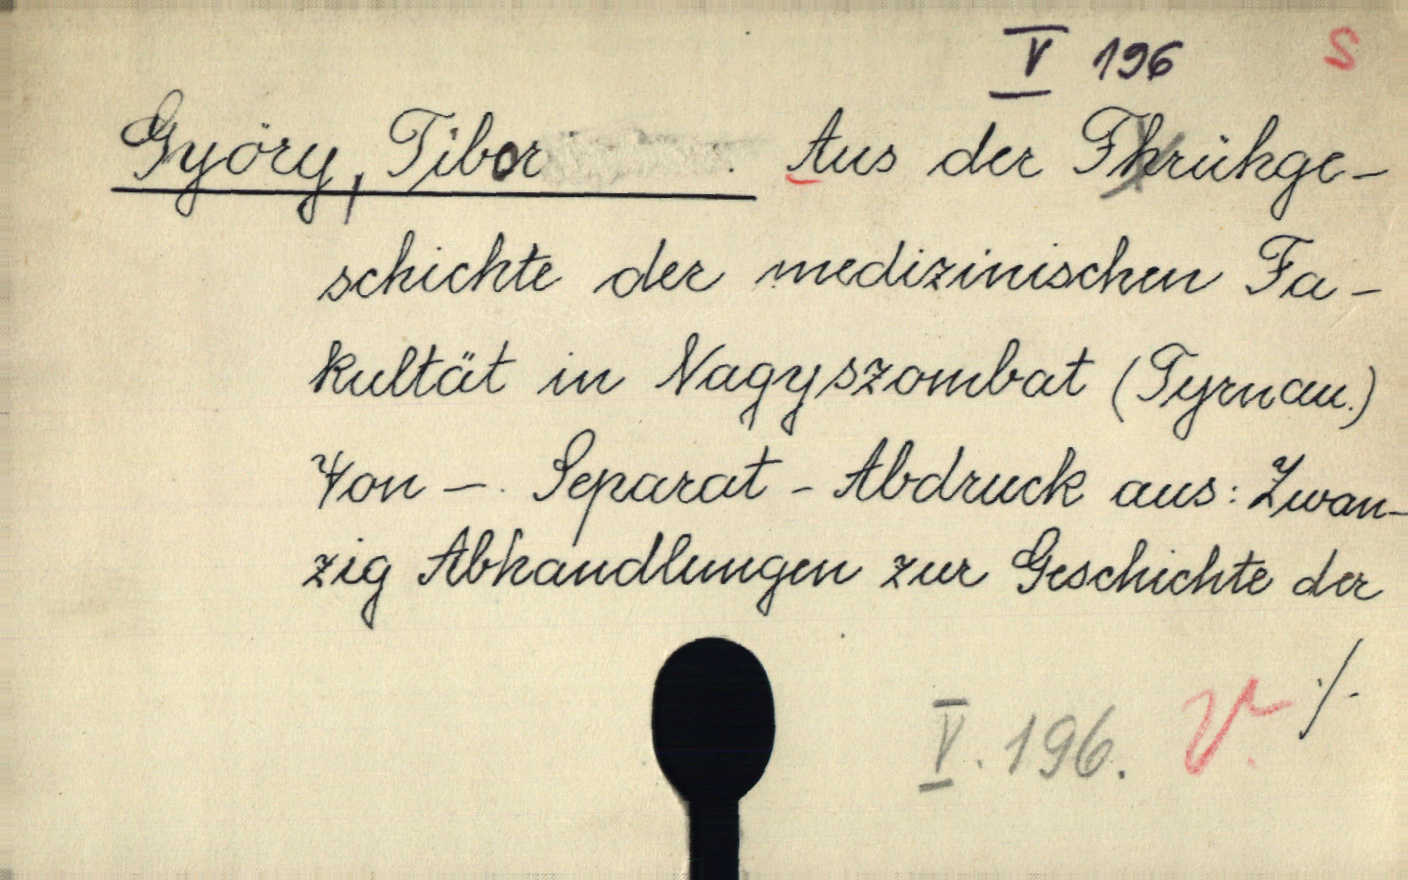 V 196 S
Györy, Tibor Aus der Fhrühge-
schichte der medizinischen Fa-
kultät in Nagyszombat (Tyrnau.)
Von —. Separat - Abdruck aus: Zwan-
zig Abhandlungen zur Geschichte der
./.
V. 196. V.